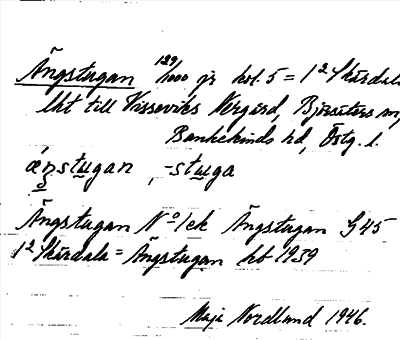 Ängstugan 129/1000 jr kol. 5 = 1² Skärdala
lht till Visseviks Nergård, Björsäters sn,
Bankekinds hd, Östg. l.
ä́nstu̲gan, -stu̲ga
Ängstugan N° 1 ek Ängstugan G45
1² Skärdala = Ängstugan hb 1939
Maja Nordlund 1946.